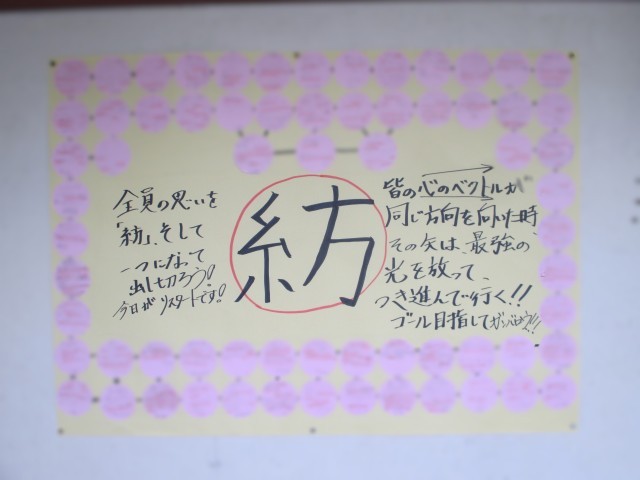 皆の心のベクトルが
同じ方向を向いた時、
その矢は、最強の、
光を放って、
つき進んで行く!!
ゴール目指してガンバロウ!!!
紡
全員の思いを
「紡」、そして
一つになって
出し切ろう!
今日がリスタートです!